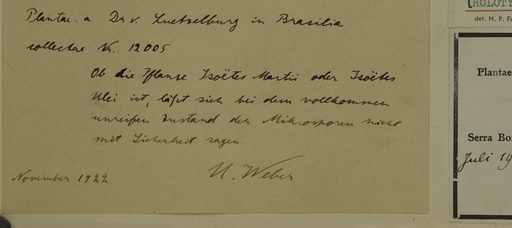 Plantae a Dr v. Luetzelburg in Brasilia
collectae N. 12005
Ob die Pflanze Isoëtes Martii oder Isoëtes
Ulei ist, läßt sich bei dem vollkommen
unreifen Zustand der Mikrosporen nicht
mit Sicherheit sagen.
November 1922
U. Weber
HOLOTY
det. H. P. F
Plantae
Serra Bo
Juli 19